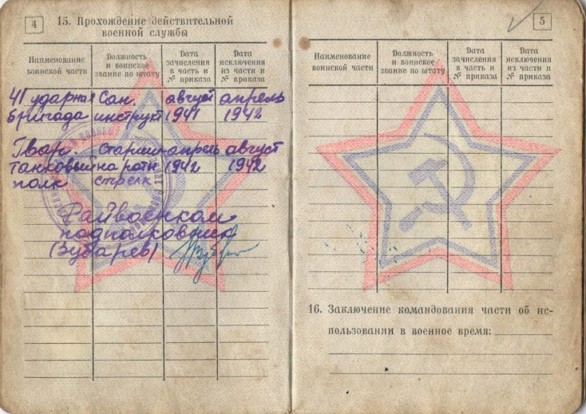 4
15. Прохождение действительной
военной службы
Наименование воинской части
Должность и воинское звание по штату
Дата зачисления в часть и № приказа
Дата исключения из части и № приказа
41 ударная Сан. август апрель
бригада инструкт 1941 1942
Гвар. старшин апрель август
танковый на роты 1942 1942
полк стрелк
Райвоенком
подполковник
(Зубарев)
5
Наименование воинской части
Должность и воинское звание по штату
Дата зачисления в часть и № приказа
Дата исключения из части и № приказа
16. Заключение командования части об ис-
пользовании в военное время: